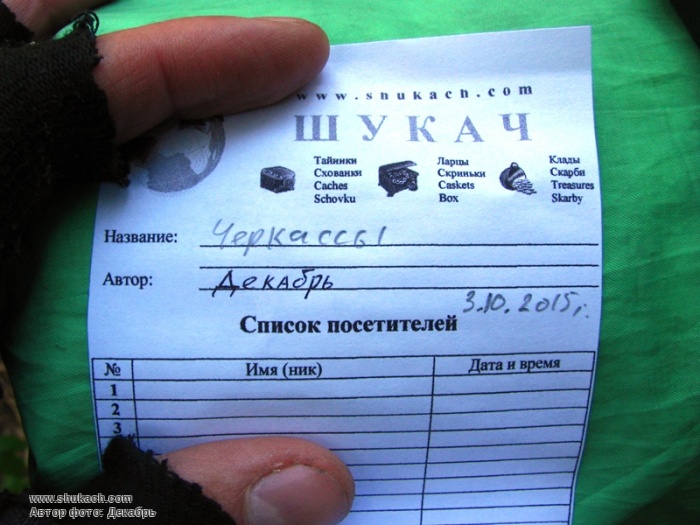 www.shukach.com
ШУКАЧ
Тайники
Схованки
Caches
Schovku
Ларцы
Скриньки
Caskets
Box
Клады
Скарби
Treasures
Skarby
Название: Черкассы
Автор: Декабрь
3.10.2015г.
Список посетителей
№ Имя (ник) Дата и время
1
2
3
www.shukach.com
Автор фото: Декабрь